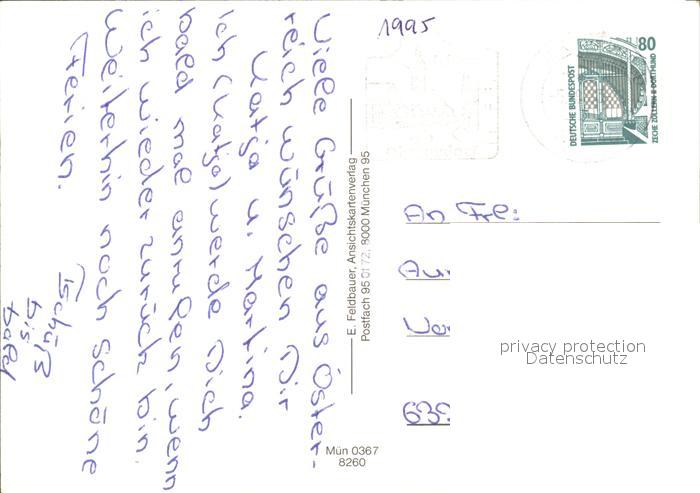 Viele Grüße aus Öster-
reich wünschen Dir
Katja u. Martina.
Ich (Katja) werde Dich
bald mal anrufen, wenn
ich wieder zurück bin.
Weiterhin noch schöne
Ferien.
Tschüß
bis
bald
1995
80
DEUTSCHE BUNDESPOST
ZECHE ZOLLERN II DORTMUND
E. Feldbauer, Ansichtskartenverlag
Postfach 95 01 72, 8000 München 95
An Frl:
privacy protection
Datenschutz
639
Mün 0367
8260